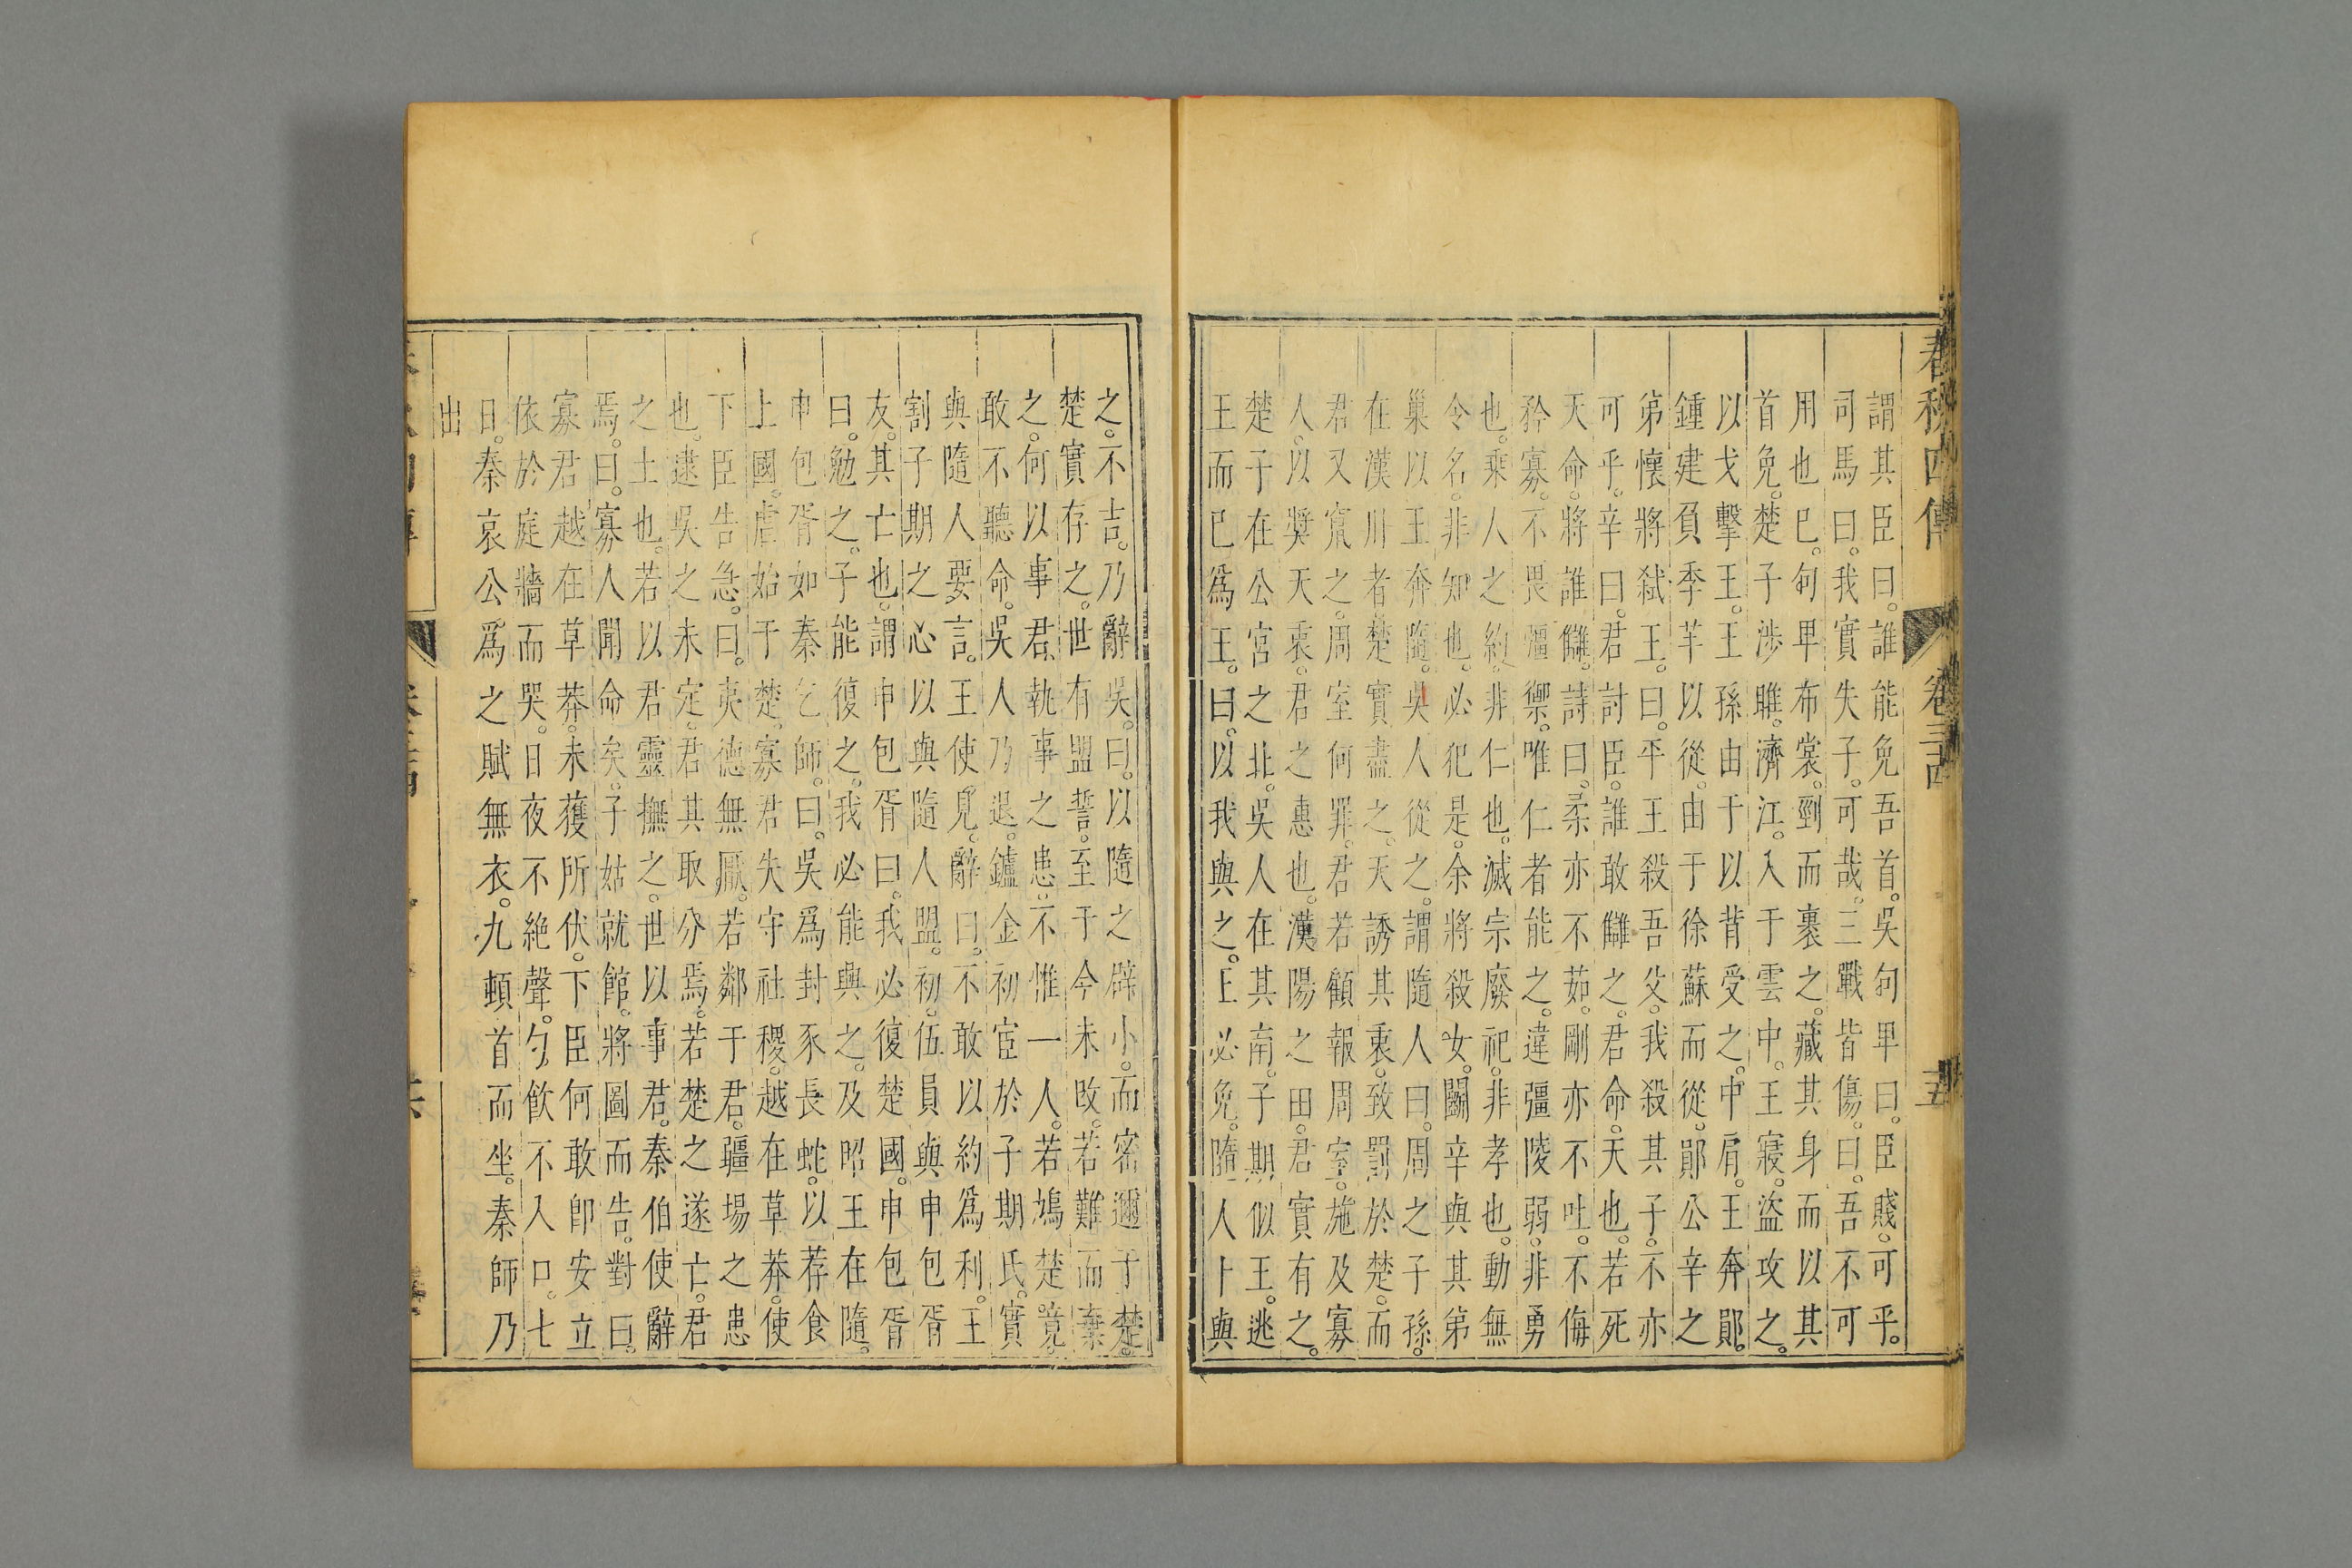 春秋四傳
卷三十四
五
謂其臣曰。誰能免吾首。吳句卑曰。臣賤。可乎。
司馬曰。我實失子。可哉。三戰皆傷。曰。吾不可
用也已。句卑布裳。剄而裹之。藏其身而以其
首免。楚子涉雎。濟江。入于雲中。王寢。盜攻之。
以戈擊王。王孫由于以背受之。中肩。王奔鄖。
鍾建負季羋以從。由于徐蘇而從。鄖公辛之
弟懷將弒王。曰。平王殺吾父。我殺其子。不亦
可乎。辛曰。君討臣。誰敢讎之。君命。天也。若死
天命。將誰讎。詩曰。柔亦不茹。剛亦不吐。不侮
矜寡。不畏彊禦。唯仁者能之。違彊陵弱。非勇
也。乘人之約。非仁也。滅宗廢祀。非孝也。動無
令名。非知也。必犯是。余將殺女。鬬辛與其弟
巢以王奔隨。吳人從之。謂隨人曰。周之子孫。
在漢川者。楚實盡之。天誘其衷。致罰於楚。而
君又竄之。周室何罪。君若顧報周室。施及寡
人。以奬天衷。君之惠也。漢陽之田。君實有之。
楚子在公宮之北。吳人在其南。子期似王。逃
王而已爲王。曰。以我與之。王必免。隨人卜與
之。不吉。乃辭吳。曰。以隨之辟小。而密邇于楚。
楚實存之。世有盟誓。至于今未改。若難而棄
之。何以事君。執事之患。不惟一人。若鳩楚。竟。
敢不聽命。吳人乃退。鑪金初宦於子期氏。實
與隨人要言。王使見。辭曰。不敢以約爲利。王
割子期之心。以與隨人盟。初。伍員與申包胥
友。其亡也。謂申包胥曰。我必復楚國。申包胥
曰。勉之。子能復之。我必能興之。及昭王在隨。
申包胥如秦乞師。曰。吳爲封豕長蛇。以荐食
上國。虐始于楚。寡君失守社稷。越在草莽。使
下臣告急。曰。夷德無厭。若鄰于君。疆埸之患
也。逮吳之未定。君其取分焉。若楚之遂亡。君
之土也。若以君靈撫之。世以事君。秦伯使辭
焉。曰。寡人聞命矣。子姑就館。將圖而告。對曰。
寡君越在草莽。未獲所伏。下臣何敢卽安。立
依於庭牆而哭。日夜不絶聲。勺飮不入口。七
日。秦哀公爲之賦無衣。九頓首而坐。秦師乃
出